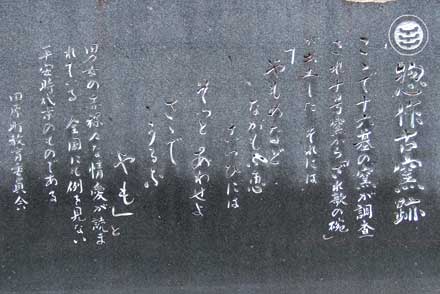 惣作古窯跡
ここで十六基の窯が調査
され 号窯から「ざれ歌の碗」
が出土した それには
「やもめなど
ながめ恋
には
そっとあわせよ
さゝで
うるふ
やも」と
男女の赤裸々な情愛が読ま
れている 全国にも例を見ない
平安時代末のものである
田原町教育委員会